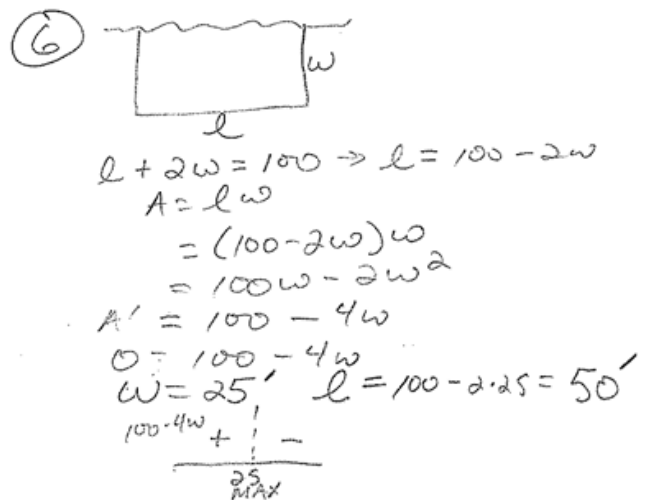 6
w
l
l + 2w = 100 → l = 100 - 2w
A = lw
= (100-2w)w
= 100w - 2w²
A' = 100 - 4w
0 = 100 - 4w
w = 25' l = 100 - 2·25 = 50'
100-4w + -
25
MAX